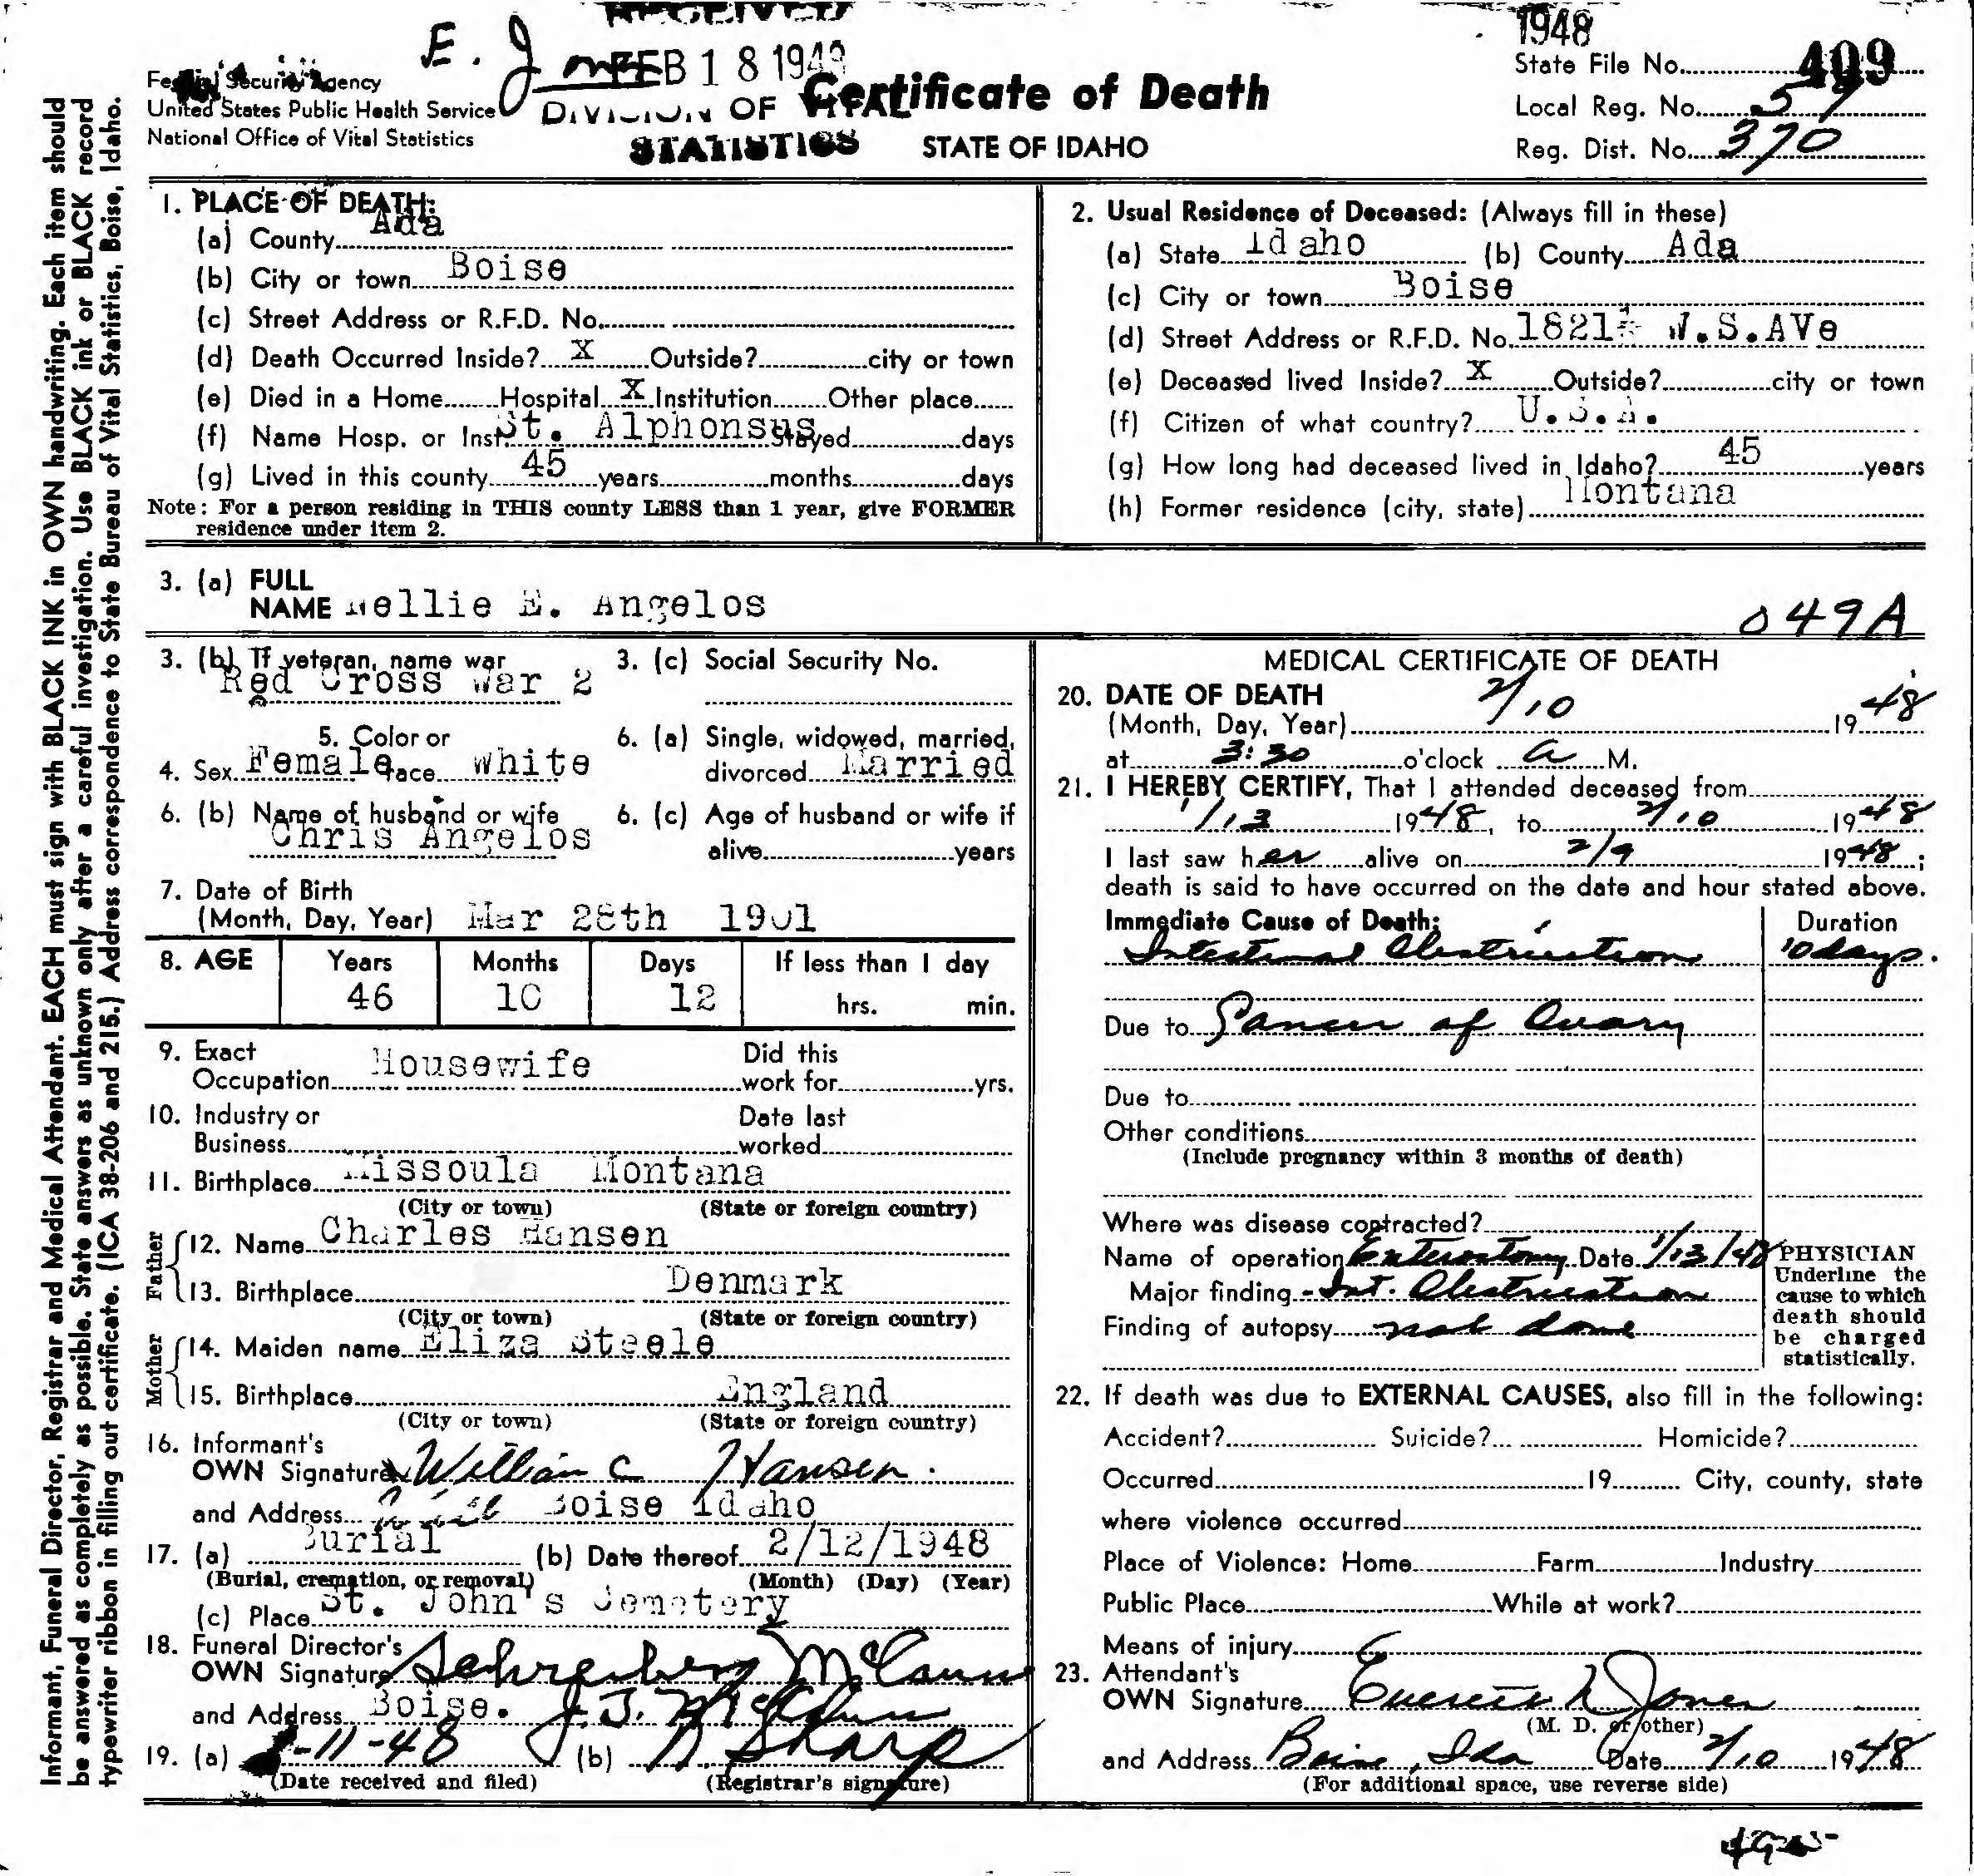 1948
RECEIVED
E. J
FEB 1 8 1948
DIVISION OF VITAL
STATISTICS
Federal Security Agency
United States Public Health Service
National Office of Vital Statistics
Certificate of Death
STATE OF IDAHO
State File No. 409
Local Reg. No. 57
Reg. Dist. No. 370
Informant, Funeral Director, Registrar and Medical Attendant. EACH must sign with BLACK INK in OWN handwriting. Each item should
be answered as completely as possible. State answers as unknown only after a careful investigation. Use BLACK ink or BLACK record
typewriter ribbon in filling out certificate. (ICA 38-206 and 215.) Address correspondence to State Bureau of Vital Statistics, Boise, Idaho.
1. PLACE OF DEATH:
(a) County Ada
(b) City or town Boise
(c) Street Address or R.F.D. No.
(d) Death Occurred Inside? X Outside? city or town
(e) Died in a Home Hospital X Institution Other place
(f) Name Hosp. or Inst. St. Alphonsus Stayed days
(g) Lived in this county 45 years months days
Note: For a person residing in THIS county LESS than 1 year, give FORMER
residence under item 2.
2. Usual Residence of Deceased: (Always fill in these)
(a) State Idaho (b) County Ada
(c) City or town Boise
(d) Street Address or R.F.D. No. 1821½ N.S.AVe
(e) Deceased lived Inside? X Outside? city or town
(f) Citizen of what country? U.S.A.
(g) How long had deceased lived in Idaho? 45 years
(h) Former residence (city, state) Montana
3. (a) FULL
NAME Nellie E. Angelos
049A
3. (b) If veteran, name war
Red Cross War 2
3. (c) Social Security No.
4. Sex Female
5. Color or
race White
6. (a) Single, widowed, married,
divorced Married
6. (b) Name of husband or wife
Chris Angelos
6. (c) Age of husband or wife if
alive years
7. Date of Birth
(Month, Day, Year) Mar 28th 1901
8. AGE Years Months Days If less than 1 day
46 10 12 hrs. min.
9. Exact
Occupation Housewife
Did this
work for yrs.
10. Industry or
Business
Date last
worked
11. Birthplace Missoula Montana
(City or town) (State or foreign country)
Father
12. Name Charles Hansen
13. Birthplace Denmark
(City or town) (State or foreign country)
Mother
14. Maiden name Eliza Steele
15. Birthplace England
(City or town) (State or foreign country)
16. Informant's
OWN Signature William C Hansen
and Address Boise Idaho
17. (a) Burial (b) Date thereof 2/12/1948
(Burial, cremation, or removal) (Month) (Day) (Year)
(c) Place St. John's Cemetery
18. Funeral Director's
OWN Signature Schreiber McCann
and Address Boise. J.J. McCann
19. (a) 2-11-48 (b) Sharp
(Date received and filed) (Registrar's signature)
MEDICAL CERTIFICATE OF DEATH
20. DATE OF DEATH
(Month, Day, Year) 2/10 1948
at 3:30 o'clock a M.
21. I HEREBY CERTIFY, That I attended deceased from
1/13 1948, to 2/10 1948
I last saw her alive on 2/9 1948;
death is said to have occurred on the date and hour stated above.
Immediate Cause of Death: Duration
Intestinal Obstruction 10 days.
Due to Cancer of Ovary
Due to
Other conditions
(Include pregnancy within 3 months of death)
Where was disease contracted?
Name of operation Enterostomy Date 1/13/48
Major finding - Int. Obstruction
Finding of autopsy not done
PHYSICIAN
Underline the
cause to which
death should
be charged
statistically.
22. If death was due to EXTERNAL CAUSES, also fill in the following:
Accident? Suicide? Homicide?
Occurred 19 City, county, state
where violence occurred
Place of Violence: Home Farm Industry
Public Place While at work?
Means of injury
23. Attendant's
OWN Signature Everett N Jones
(M. D. or other)
and Address Boise, Ida Date 2/10 1948
(For additional space, use reverse side)